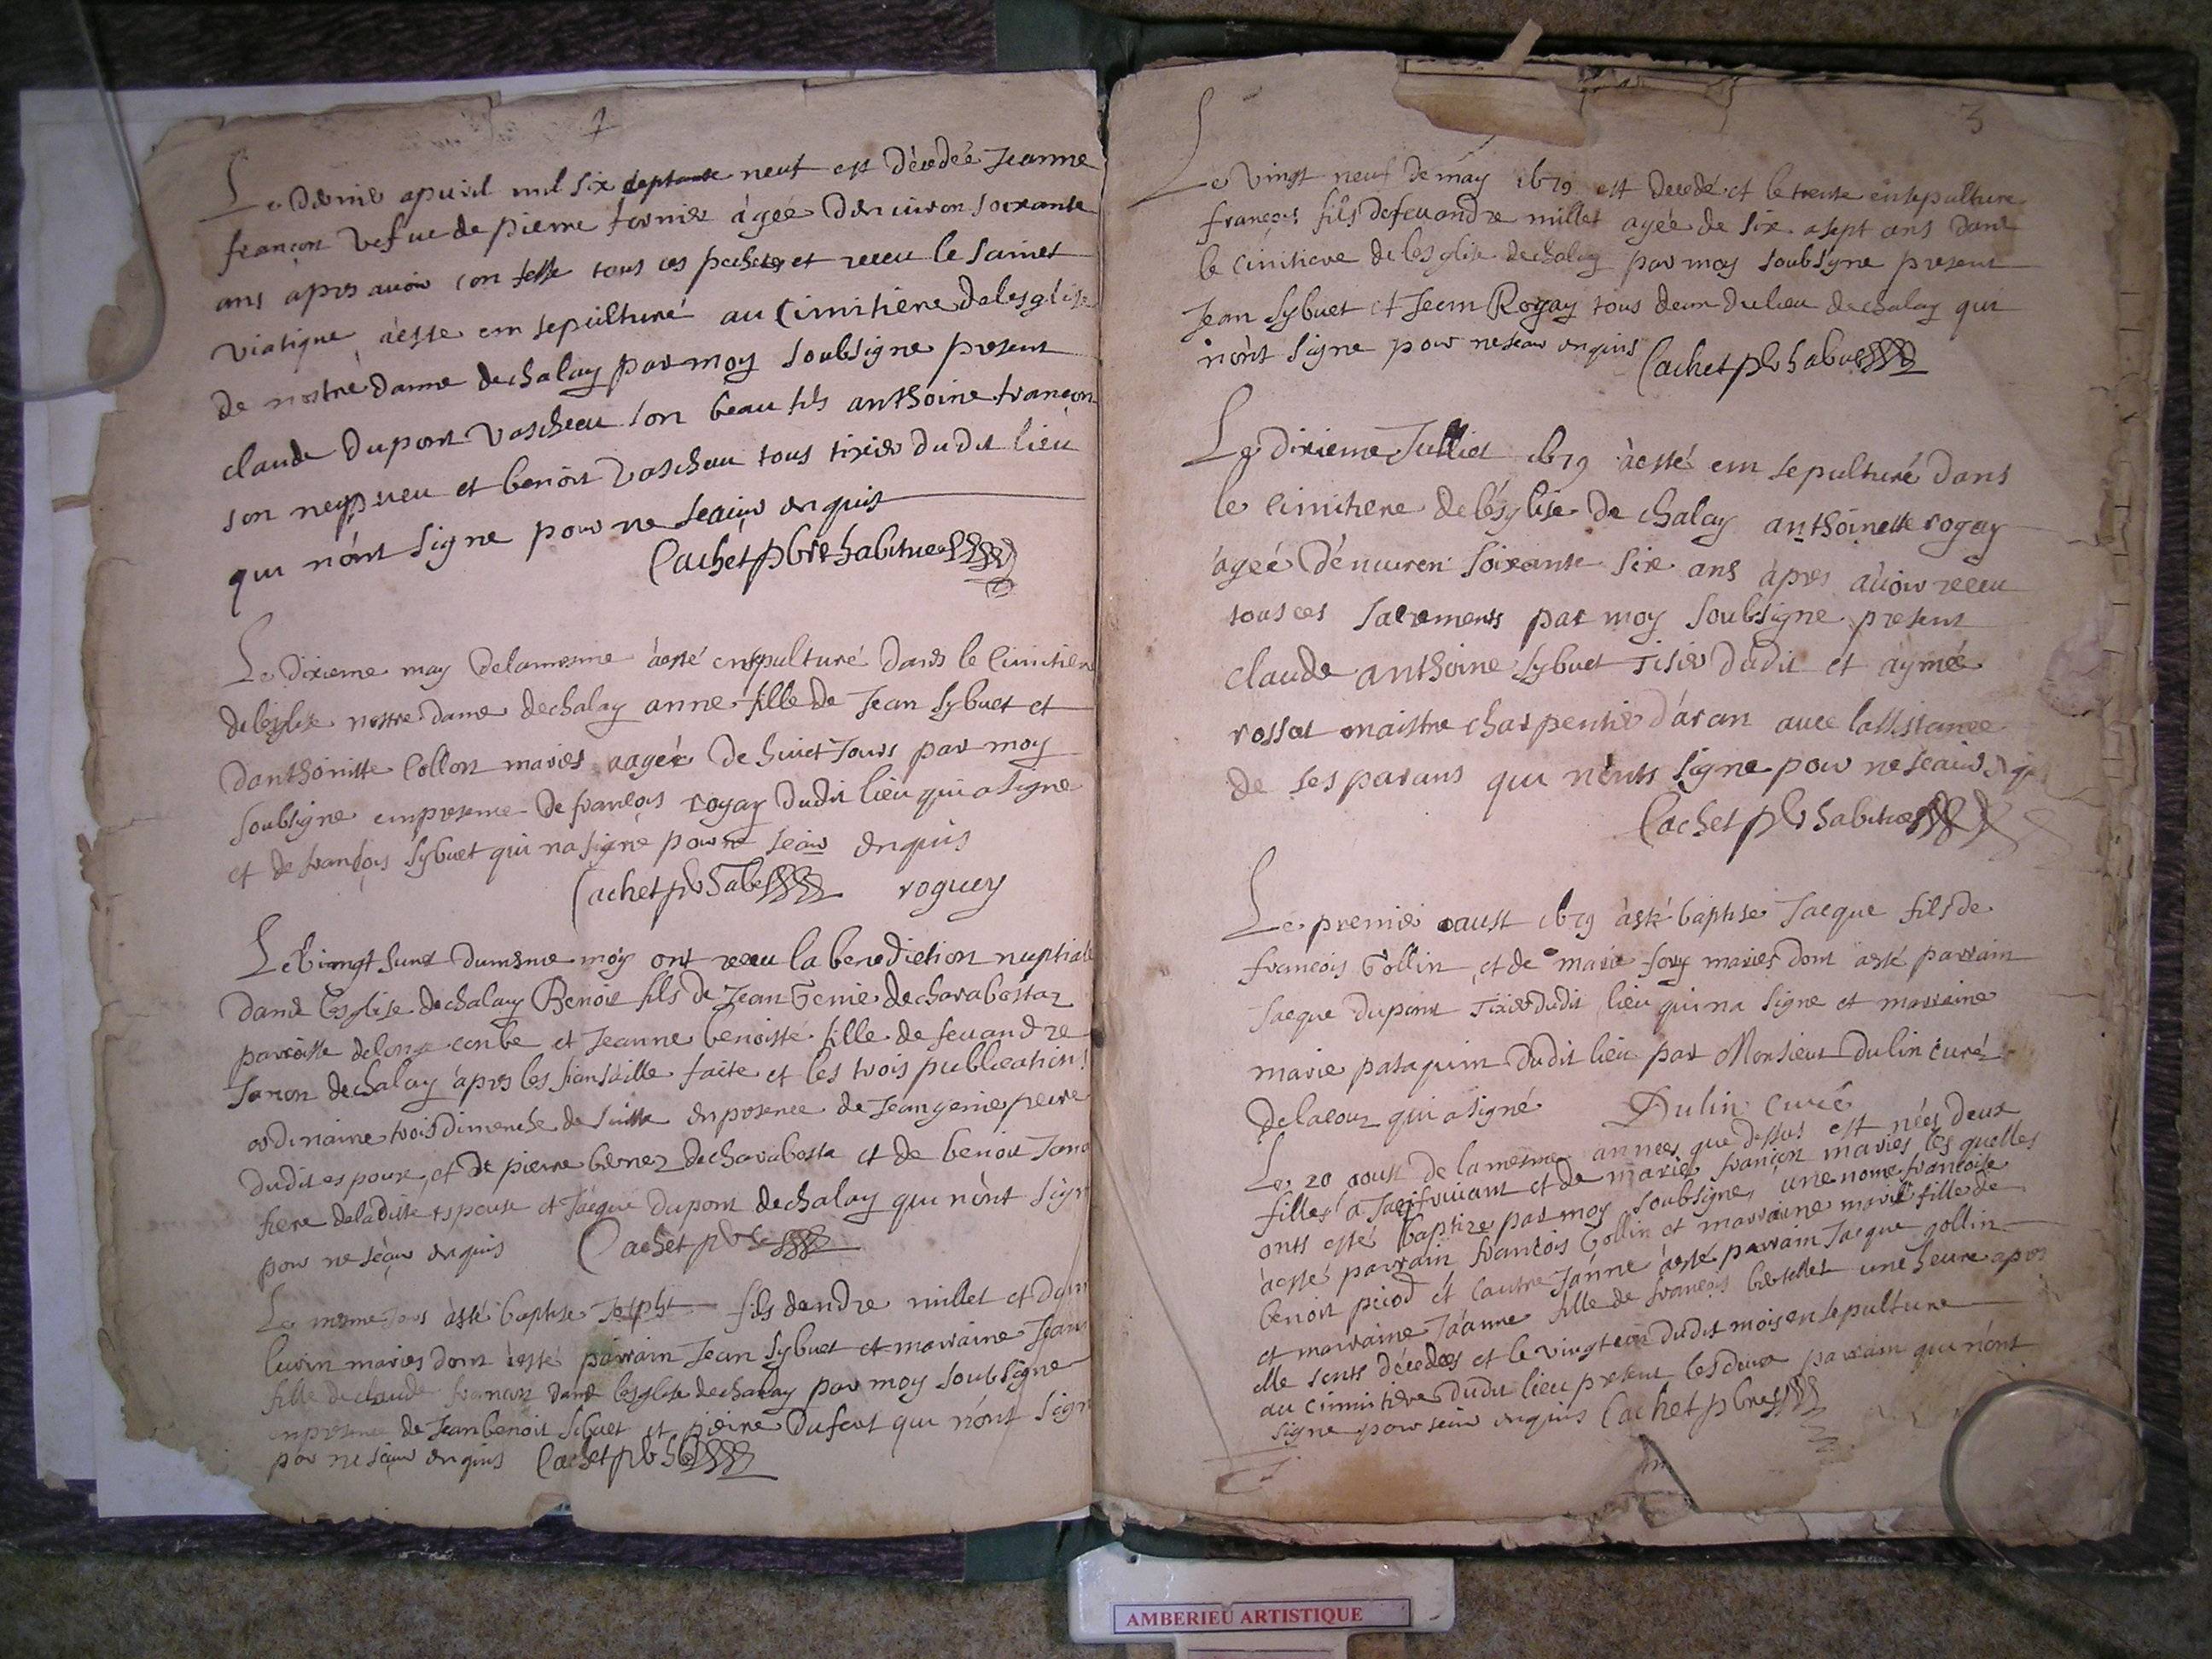 Le dernier apuril mil six septante neuf est décedée Jeanne
françon vefue de pierre fornier àgeé denuiron soixante
ans àpres auoir confesse tous ces peches et receu le sainct
viatique àeste em sepulturé au Cimitiere de lesglise
de nostre damme de chalay par moy soubsigne present
claude dupont vascheau son beau fils anthoine françon
son nepueu et benoit vascheau tous tixier du dit lieu
qui nònt signe pour ne scauoir enquis
Cachet pbre habitue
Le dixieme may de la mesme àesté ensepulturé dans le Cimitiere
de lesglise nostre dame de chalay anne fille de Jean sybuet et
danthoinette Collon mariés aageé de huict Jours par moy
soubsigne empresence de françois rogay dudit lieu qui a signe
et de françois sybuet qui na signe pour ne scauoir enquis
Cachet pbr habe roguey
Le vingt dumesme moy ont receu la benediction nuptiale
dans lesglise de chalay Benoit fils de Jean Genie de charabottaz
parroisse de longe conbe et Jeanne benoiste fille de feu andre
Janon de chalay àpres les fiansaille faite et les trois publications
ordinaire trois dimenche de suitte enpresence de Jean genie peire
dudit espoux, et de pierre de charabotta et de benoit Jano
frere de la ditte espouse et Jaeque dupont de chalay qui nònt sign
pour ne scauoir enquis Cachet pbr
Le mesme Jour àsté baptise Joseph fils dandre millet et
mariés dont àesté parrain Jean sybuet et marraine Jean
fille de claude françon dans lesglise de chalay par moy soubsigne
enpresence de Jean benoit sibuet et pierre dufort qui nònt sign
por ne scauoir enquis Cachet pbr hb
3
Le vingt neuf de may 1679 est decedé et le trente ensepulture
françois fils de feu andre millet ageé de six a sept ans dans
le cimitiere de lesglise de chalay par moy soubsigne present
Jean sybuet et Jean Rogay tous deux du lieu de chalay qui
nònt signe pour ne scauoir enquis Cachet pbr habue
Le dixieme Julliet 1679 àesté em sepulturé dans
le cimitiere de lésglise de chalay anthoinette rogay
àgeé dénuiron soixante six ans àpres àuoir receu
tous ces sacrements par moy soubsigne present
claude anthoine sybuet Tisier dudit et àymée
rosset maistre charpentier daran auec lassistance
de ses parans qui nònts signe pour ne scauoir
Cachet pbr habitue
Le premier aaust 1679 àsté baptise Jaeque fils de
françois Gollin et de marie mariés dont àesté parrain
Jaeque dupont Tixier dudit lieu qui na signe et marraine
marie pataquin dudit lieu par Monsieur dulin curé
de lacour qui a signé Dulin curé
Le 20 aoust de la mesme annees que dessus est neés deux
filles a et de marie françon mariés lesquelles
onts esté baptize par moy soubsigne, une nome françoise
àesté parrain françois Gollin et marraine marie fille de
benoit et lautre Jànne àesté parrain Jacque gollin
et marraine Jàanne fille de françois une heure apres
elle sonts décedees et le vingt dudit mois en sepulture
au cimitiere dudit lieu present les deux parrain qui nónt
signe pour scauoir enquis Cachet pbre
AMBERIEU ARTISTIQUE